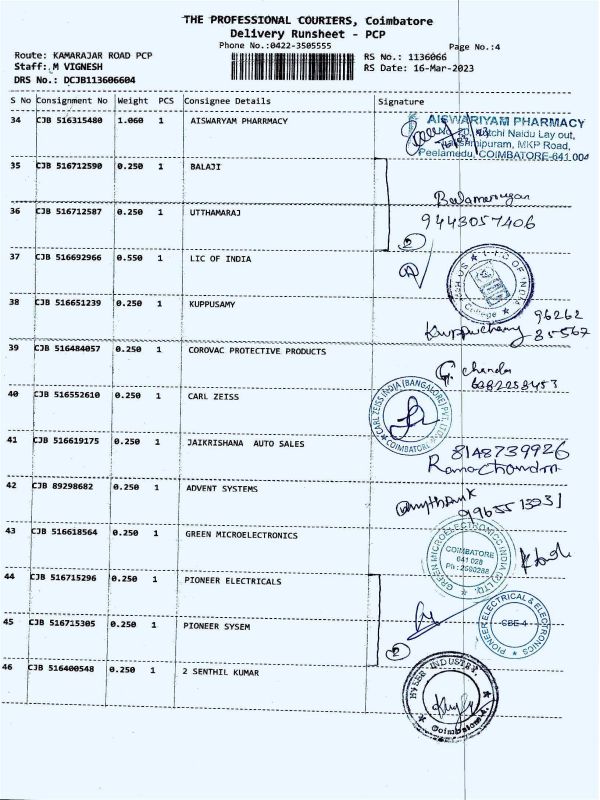 THE PROFESSIONAL COURIERS, Coimbatore
Delivery Runsheet - PCP
Phone No.:0422-3505555
Page No.:4
Route: KAMARAJAR ROAD PCP
RS No.: 1136066
Staff: M VIGNESH
RS Date: 16-Mar-2023
DRS No.: DCJB113606604
S No Consignment No Weight PCS Consignee Details Signature
34 CJB 516315480 1.060 1 AISWARYAM PHARRMACY
AISWARIYAM PHARMACY
Naidu Lay out,
puram, MKP Road,
Peelamedu, COIMBATORE-641 004
35 CJB 516712590 0.250 1 BALAJI
Balamurugan
36 CJB 516712587 0.250 1 UTTHAMARAJ
9443057406
2
37 CJB 516692966 0.550 1 LIC OF INDIA
L.I.C OF INDIA
College
38 CJB 516651239 0.250 1 KUPPUSAMY
Kuppuchamy 96262
35567
39 CJB 516484057 0.250 1 COROVAC PROTECTIVE PRODUCTS
G. chandra
40 CJB 516552610 0.250 1 CARL ZEISS
CARL ZEISS INDIA (BANGALORE) PVT. LTD.
COIMBATORE
41 CJB 516619175 0.250 1 JAIKRISHANA AUTO SALES
8148739926
Ramachandran
42 CJB 89298682 0.250 1 ADVENT SYSTEMS
43 CJB 516618564 0.250 1 GREEN MICROELECTRONICS
GREEN MICROELECTRONICS INDIA (P) LTD.
COIMBATORE
641 028
Ph : 2580288
44 CJB 516715296 0.250 1 PIONEER ELECTRICALS
PIONEER ELECTRICAL & ELECTRONICS
CBE-4
45 CJB 516715305 0.250 1 PIONEER SYSEM
2
46 CJB 516400548 0.250 1 2 SENTHIL KUMAR
INDUSTRY
Coimbatore